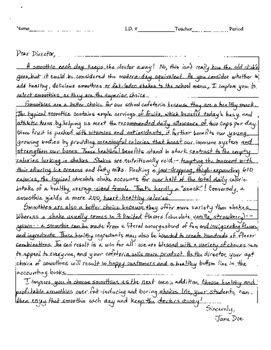 Name I.D. # Teacher Period
Dear Director,
A smoothie each day keeps the doctor away! No, this isn't really how the old
goes, but it could be considered the modern-day equivalent. As you consider whether to
add healthy, delicious smoothies or shakes to the school menu, I implore you to
select smoothies, as they are the superior choice.
Smoothies are a better choice for our school cafeteria because they are a healthy snack.
The typical smoothie contains ample servings of fruits, which benefit today's busy and
athletic teen by helping us meet the recommended daily allowance of two cups per day.
Since fruit is packed with vitamins and antioxidants, it further benefits our young,
growing bodies by providing meaningful calories that boost our immune system and
strengthen our bones. These healthful benefits stand in stark contrast to the empty
calories lurking in shakes. Shakes are nutritionally void - tempting the innocent with
their alluring ice creams and fatty milks. Packing a jaw-dropping, thigh-expanding 610
calories, the typical chocolate shake accounts for over half of the total daily caloric
intake of a heavenly average sized female. That's hardly a "snack"! Conversely, a
smoothie yields a mere 200 heart healthy calories.
Smoothies are also a better choice because they offer more variety than shakes.
Whereas a shake usually comes in 3 limited flavors (chocolate, vanilla, strawberry) -
yawn - a smoothie can be made from a literal smorgasbord of fun and invigorating flavors
and ingredients. These healthy ingredients may also be combined to create hundreds of flavor
combinations. The end result is a win for all: we are blessed with a variety of choices
to appeal to everyone, and your cafeteria will move product. As the director, your apt
choice of smoothies will result in happy customers and a healthy bottom line in the
accounting books.
I implore you to choose smoothies as the next menu addition, choose healthy and
profitable smoothies over fat-inducing and boring shakes. We, your students, can
then enjoy that smoothie each day and keep the doctors away!
Sincerely,
Jane Doe